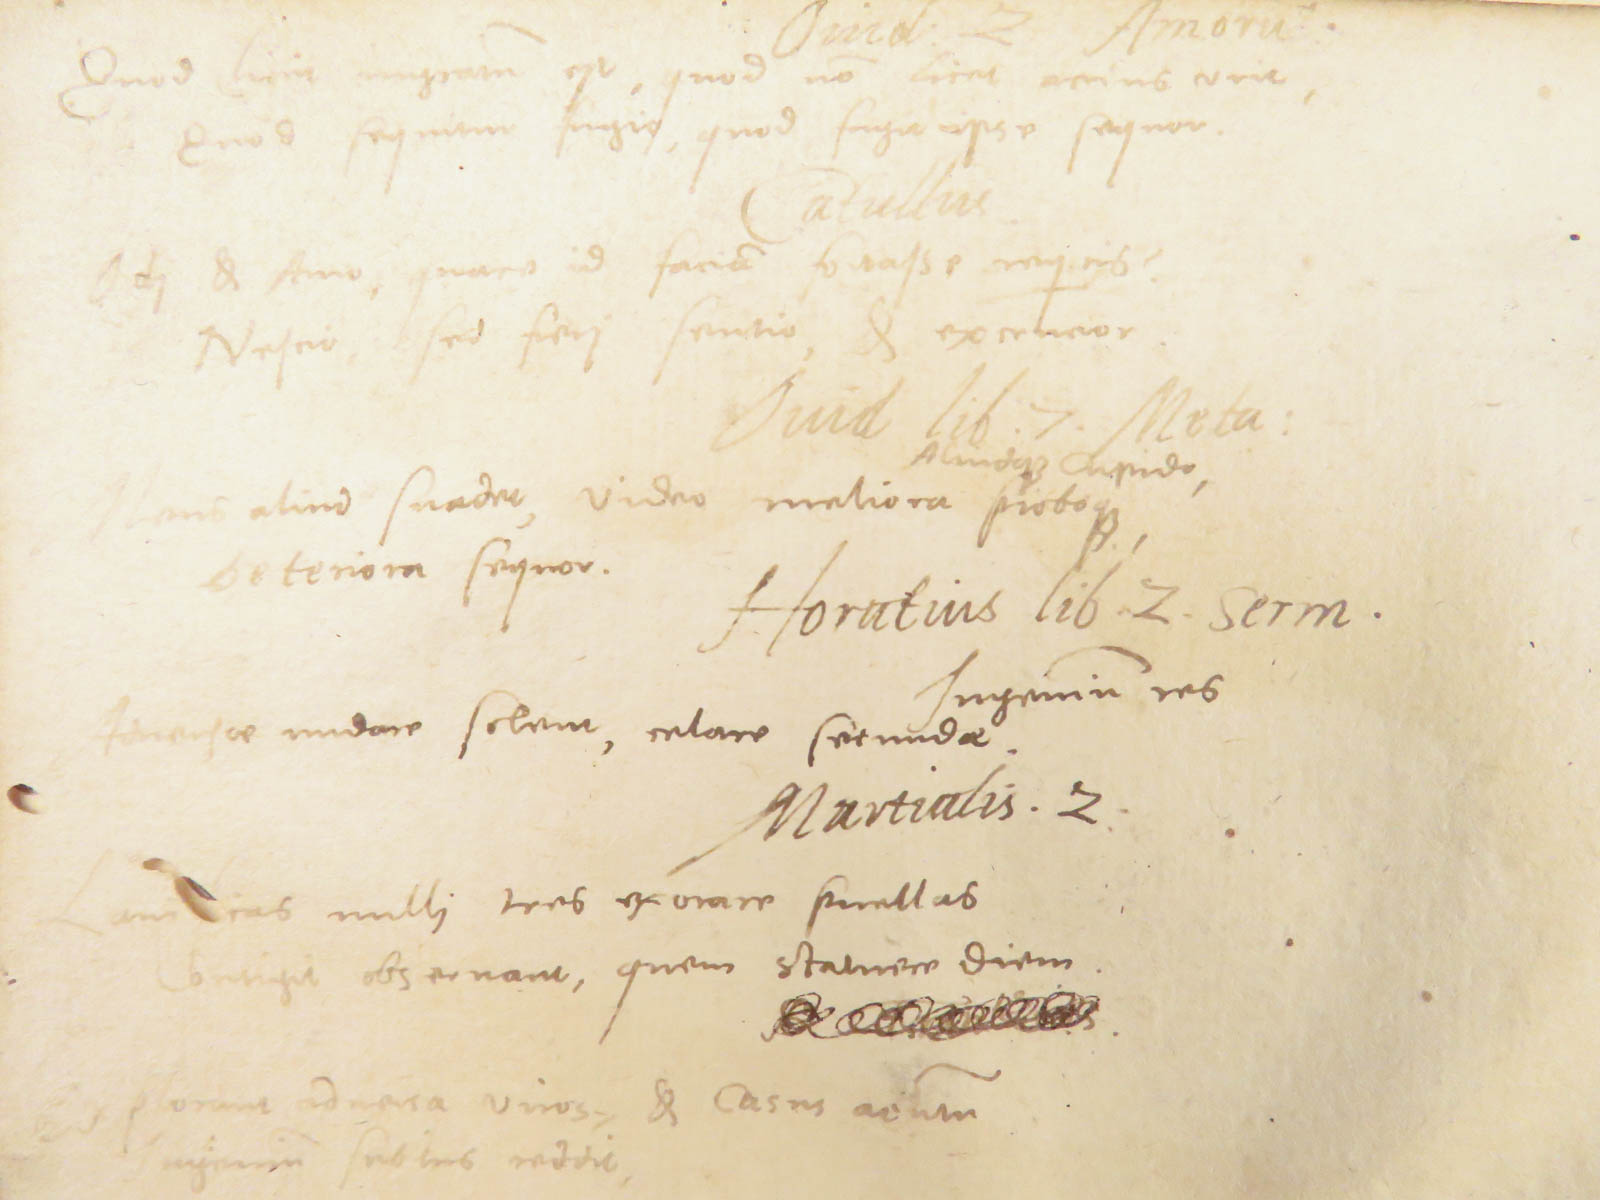 Ouid. 2 Amorū.
Quod licet ingratū est, quod nō licet acrius urit,
Quod sequitur fugio, quod fugit ipse sequor.
Catullus
Odi & Amo, quare id faciā fortasse requiris?
Nescio, sed fierj sentio, & excrucior.
Ouid lib. 7. Meta:
Aliudqȝ Cupido,
Mens aliud suadet, video meliora proboqȝ,
deteriora sequor.
Horatius lib. 2. Serm.
Ingeniū res
Aduersæ nudare solent, celare secundæ.
Martialis. 2.
nullj tres exorare puellas
Contigit obseruant, quem statuere diem.
Explorant aduersa viros, & Casus acutū
Ingeniū subitus reddit,